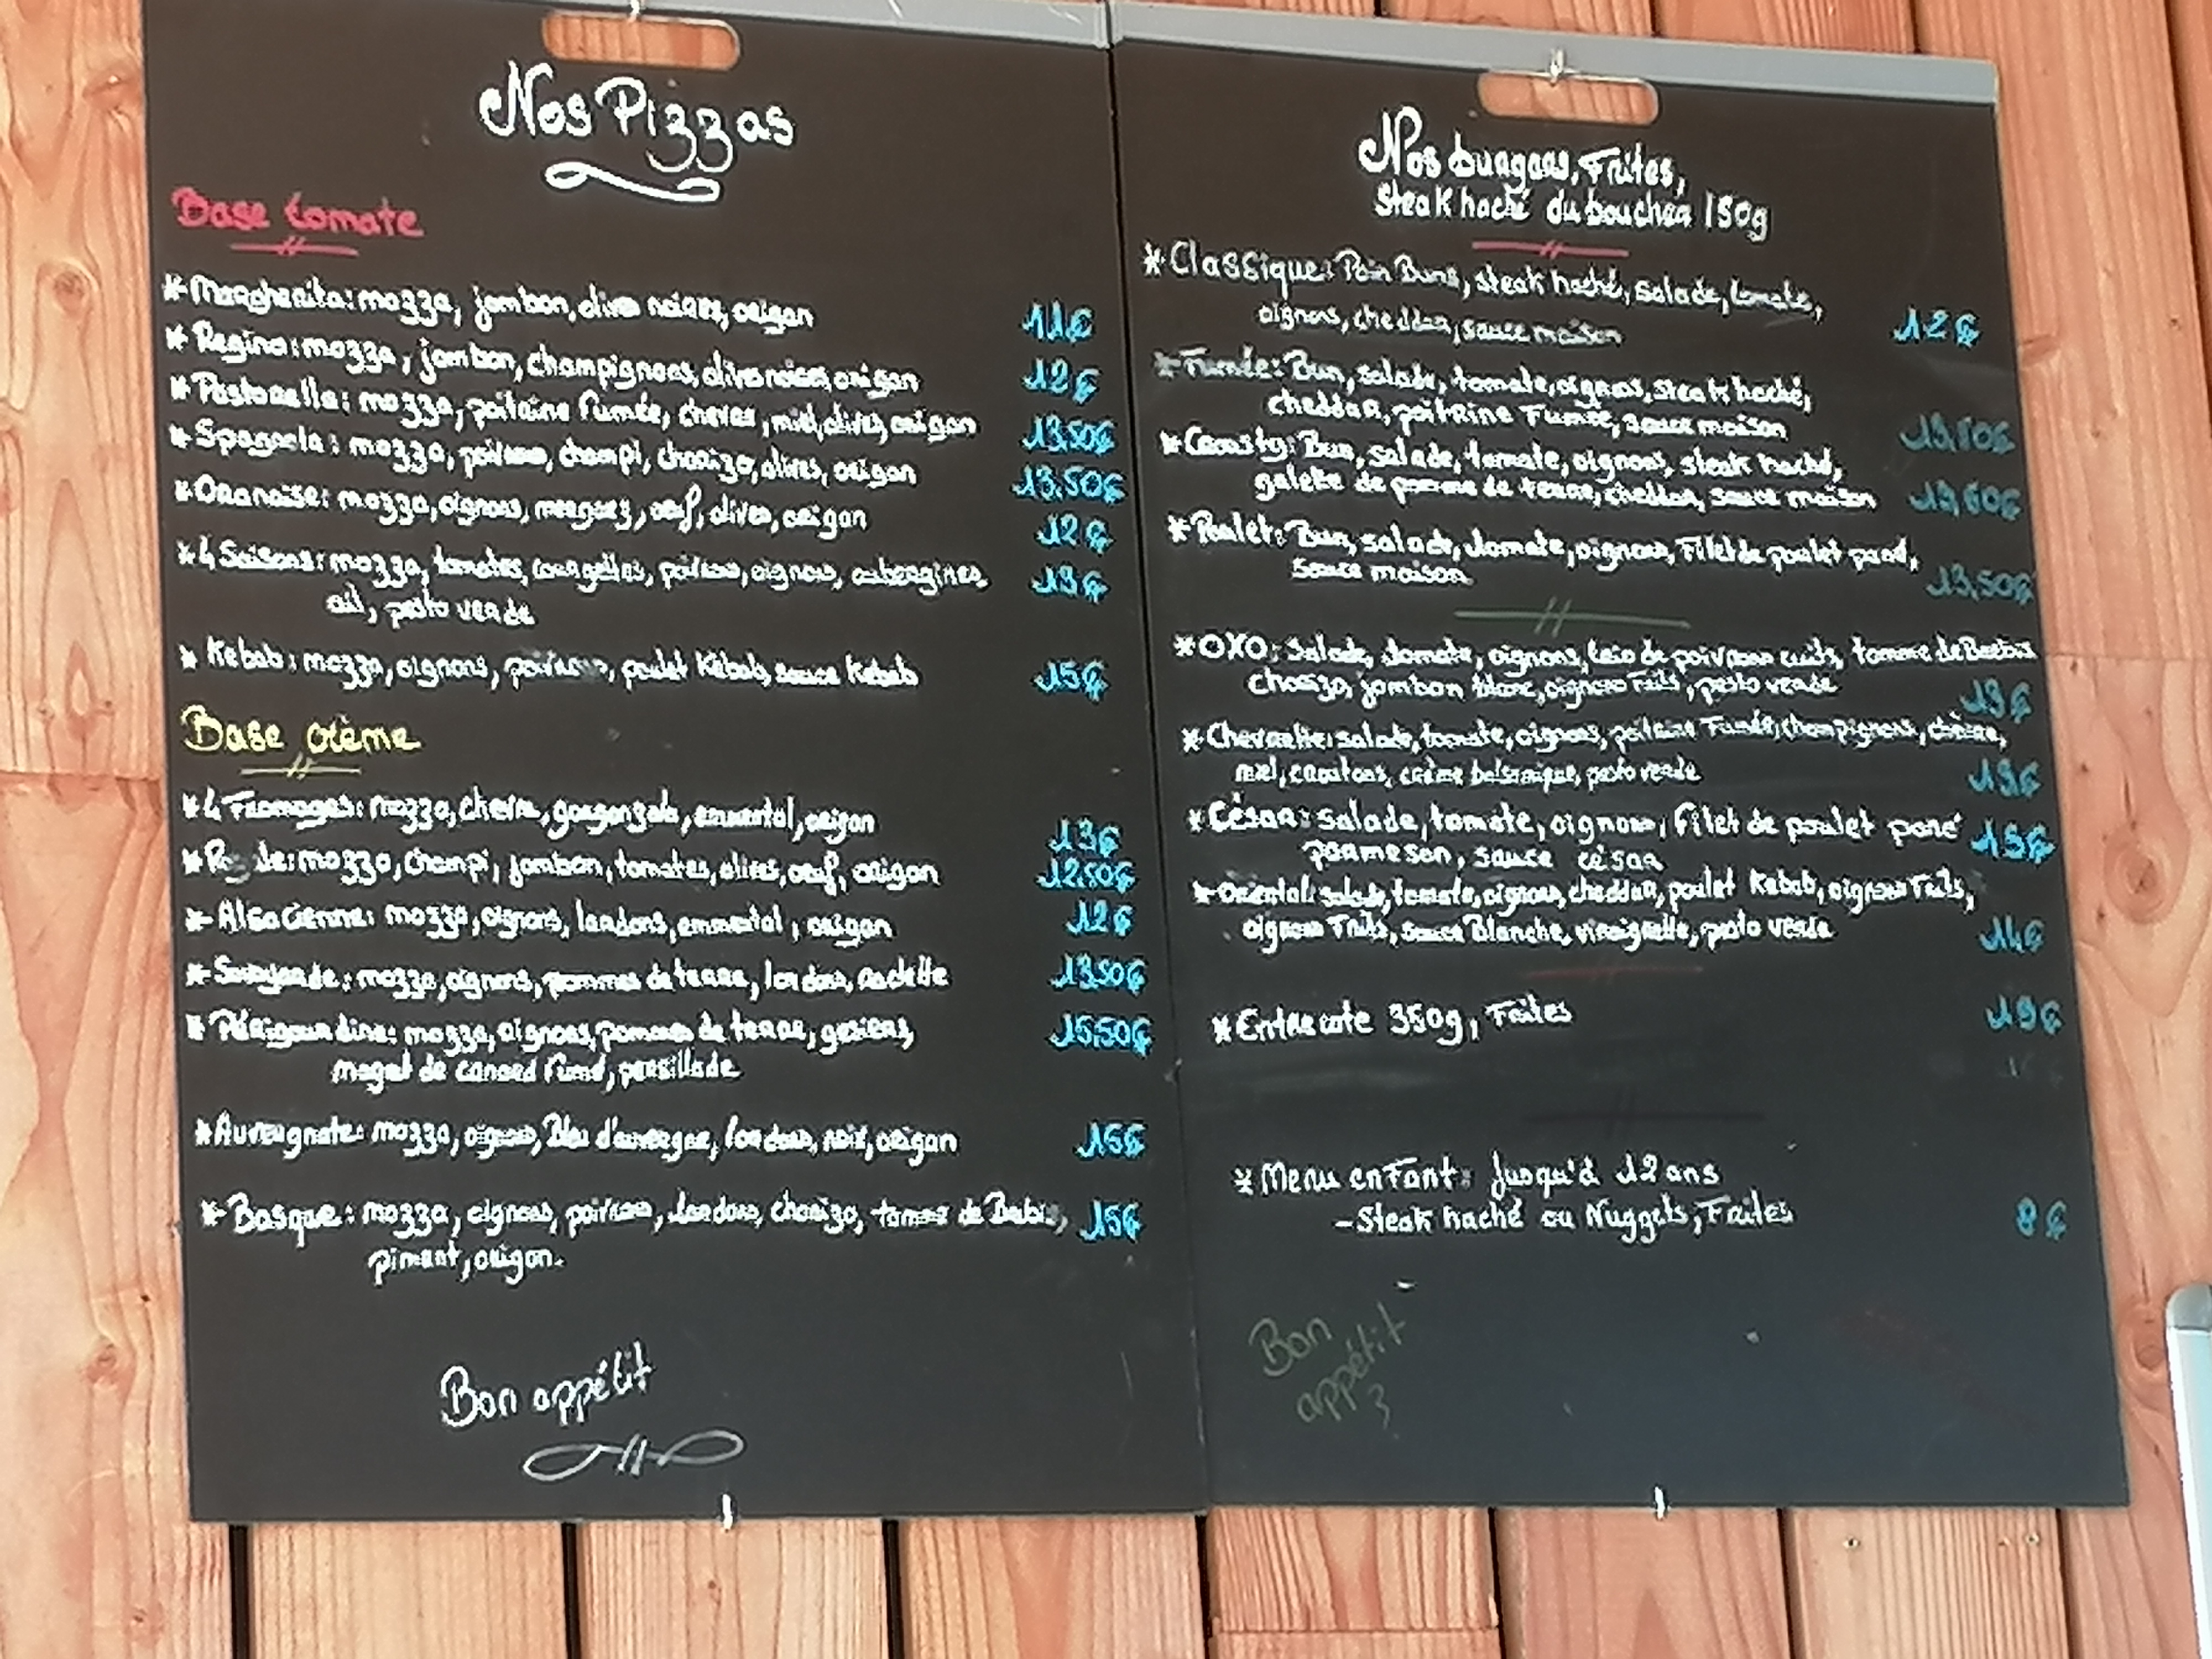 Nos Pizzas
Base tomate
* Margherita: mozza, jambon, olives noires, origan 11€
* Regina: mozza, jambon, champignons, olives noires, origan 12€
* Pastorella: mozza, poitrine fumée, chèvre, miel, olives, origan 13.50€
* Spagnola: mozza, poivrons, champi, chorizo, olives, origan 13.50€
* Oranaise: mozza, oignons, merguez, oeuf, olives, origan 12€
* 4 Saisons: mozza, tomates, courgettes, poivrons, oignons, aubergines, 13€
ail, pesto verde
* Kebab: mozza, oignons, poivrons, poulet Kebab, sauce Kebab 15€
Base crème
* 4 Fromages: mozza, chèvre, gorgonzola, emmental, origan 13€
* mozza, champi, jambon, tomates, olives, oeuf, origan 12.50€
* Alsacienne: mozza, oignons, lardons, emmental, origan 12€
* Savoyarde: mozza, oignons, pommes de terre, lardons, raclette 13.50€
* Périgourdine: mozza, oignons, pommes de terre, gesiers, 15.50€
magret de canard fumé, persillade
* Auvergnate: mozza, oignons, Bleu d'auvergne, lardons, noix, origan
* Basque: mozza, oignons, poivrons, lardons, chorizo, tomme de Brebis,
piment, origan.
Bon appétit
Nos burgers, Frites,
Steak haché du boucher 150g
* Classique: Pain Buns, steak haché, salade, tomate,
oignons, cheddar, sauce maison 12€
* Fumée: Bun, salade, tomate, oignons, steak haché,
cheddar, poitrine Fumée, sauce maison
* Crousty: Bun, salade, tomate, oignons, steak haché,
galette de pomme de terre, cheddar, sauce maison
* Poulet: Bun, salade, tomate, oignons, Filet de poulet pané,
sauce maison 13,50€
* OXO: Salade, tomate, oignons, trio de poivrons cuits, tomme de Brebis
chorizo, jambon blanc, oignons frits, pesto verde 13€
* Chevrette: salade, tomate, oignons, poitrine Fumée, champignons, chèvre,
miel, croutons, crème balsamique, pesto verde 13€
* César: salade, tomate, oignons, filet de poulet pané
parmesan, sauce césar
* Oriental: salade, tomate, oignons, cheddar, poulet Kebab, oignons Frits,
oignons Frits, sauce Blanche, vinaigrette, pesto verde 14€
* Entrecote 350g, Frites 19€
* Menu enfant: Jusqu'à 12 ans
- Steak haché ou Nuggets, Frites 8€
Bon
appétit